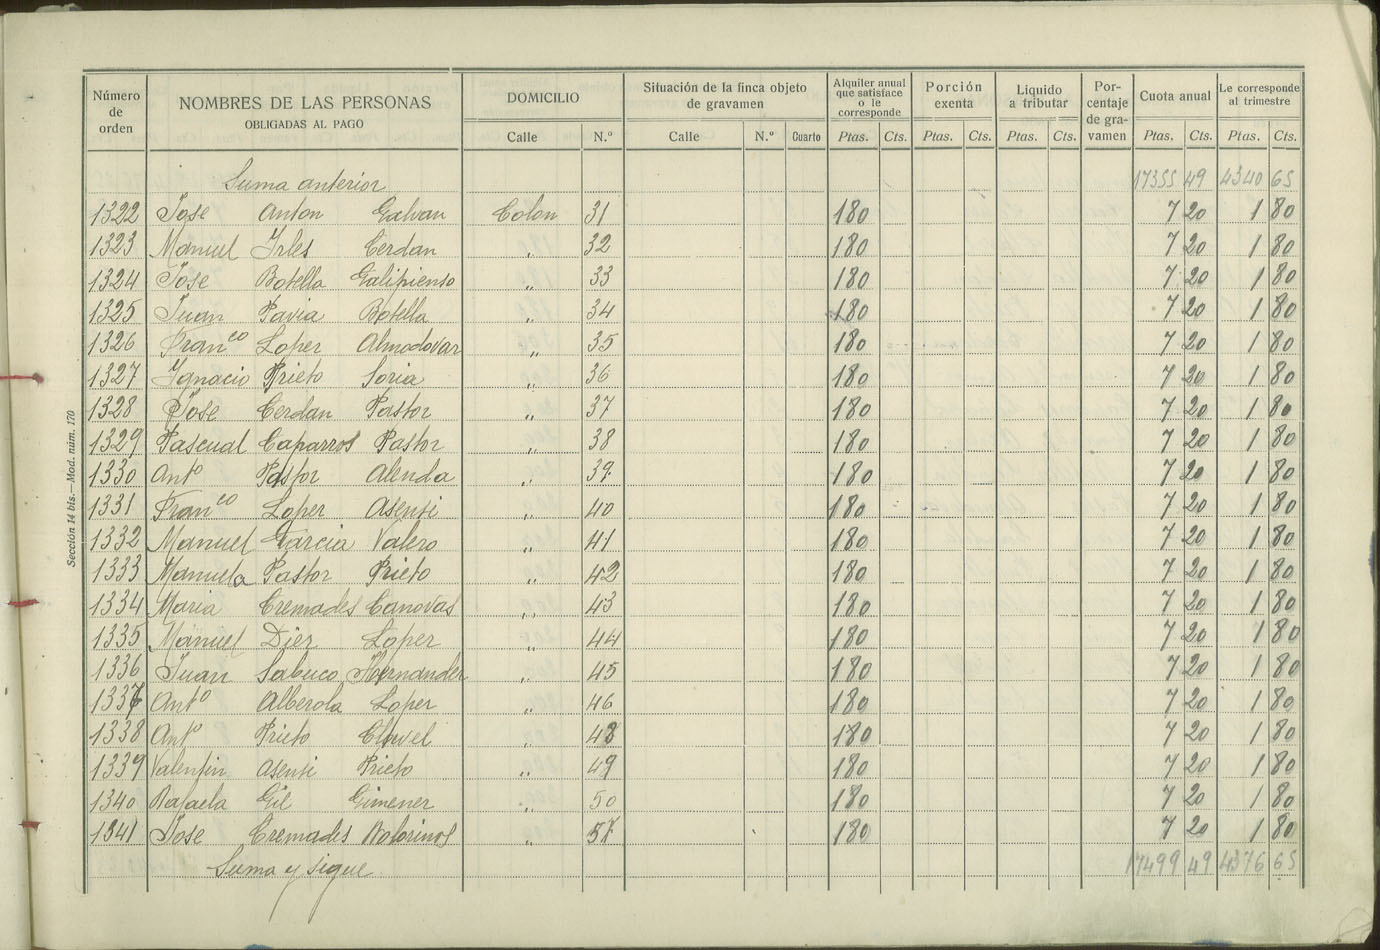 Número de orden NOMBRES DE LAS PERSONAS OBLIGADAS AL PAGO DOMICILIO Situación de la finca objeto de gravamen Alquiler anual que satisface o le corresponde Porción exenta Líquido a tributar Porcentaje de gravamen Cuota anual Le corresponde al trimestre
Calle N.º Calle N.º Cuarto Ptas. Cts. Ptas. Cts. Ptas. Cts. Ptas. Cts. Ptas. Cts.
Suma anterior 17355 49 4340 65
1322 Jose Anton Galvan Colon 31 180 7 20 1 80
1323 Manuel Irles Cerdan " 32 180 7 20 1 80
1324 Jose Botella Galipienso " 33 180 7 20 1 80
1325 Juan Pavia Botella " 34 180 7 20 1 80
1326 Franco Loper Almodovar " 35 180 7 20 1 80
1327 Ygnacio Prieto Soria " 36 180 7 20 1 80
1328 Jose Cerdan Pastor " 37 180 7 20 1 80
1329 Pascual Caparros Pastor " 38 180 7 20 1 80
1330 Anto Pastor Alenda " 39 180 7 20 1 80
1331 Franco Loper Asensi " 40 180 7 20 1 80
1332 Manuel Garcia Valero " 41 180 7 20 1 80
1333 Manuela Pastor Prieto " 42 180 7 20 1 80
1334 Maria Cremades Canovas " 43 180 7 20 1 80
1335 Manuel Dier Loper " 44 180 7 20 1 80
1336 Juan Sabuco Hernander " 45 180 7 20 1 80
1337 Anto Alberola Loper " 46 180 7 20 1 80
1338 Anto Prieto Clavel " 48 180 7 20 1 80
1339 Valentin Asensi Prieto " 49 180 7 20 1 80
1340 Rafaela Gil Gimener " 50 180 7 20 1 80
1341 Jose Cremades Bolorinos " 51 180 7 20 1 80
Suma y sigue 17499 49 4376 65
Sección 14 bis.—Mod. núm. 170